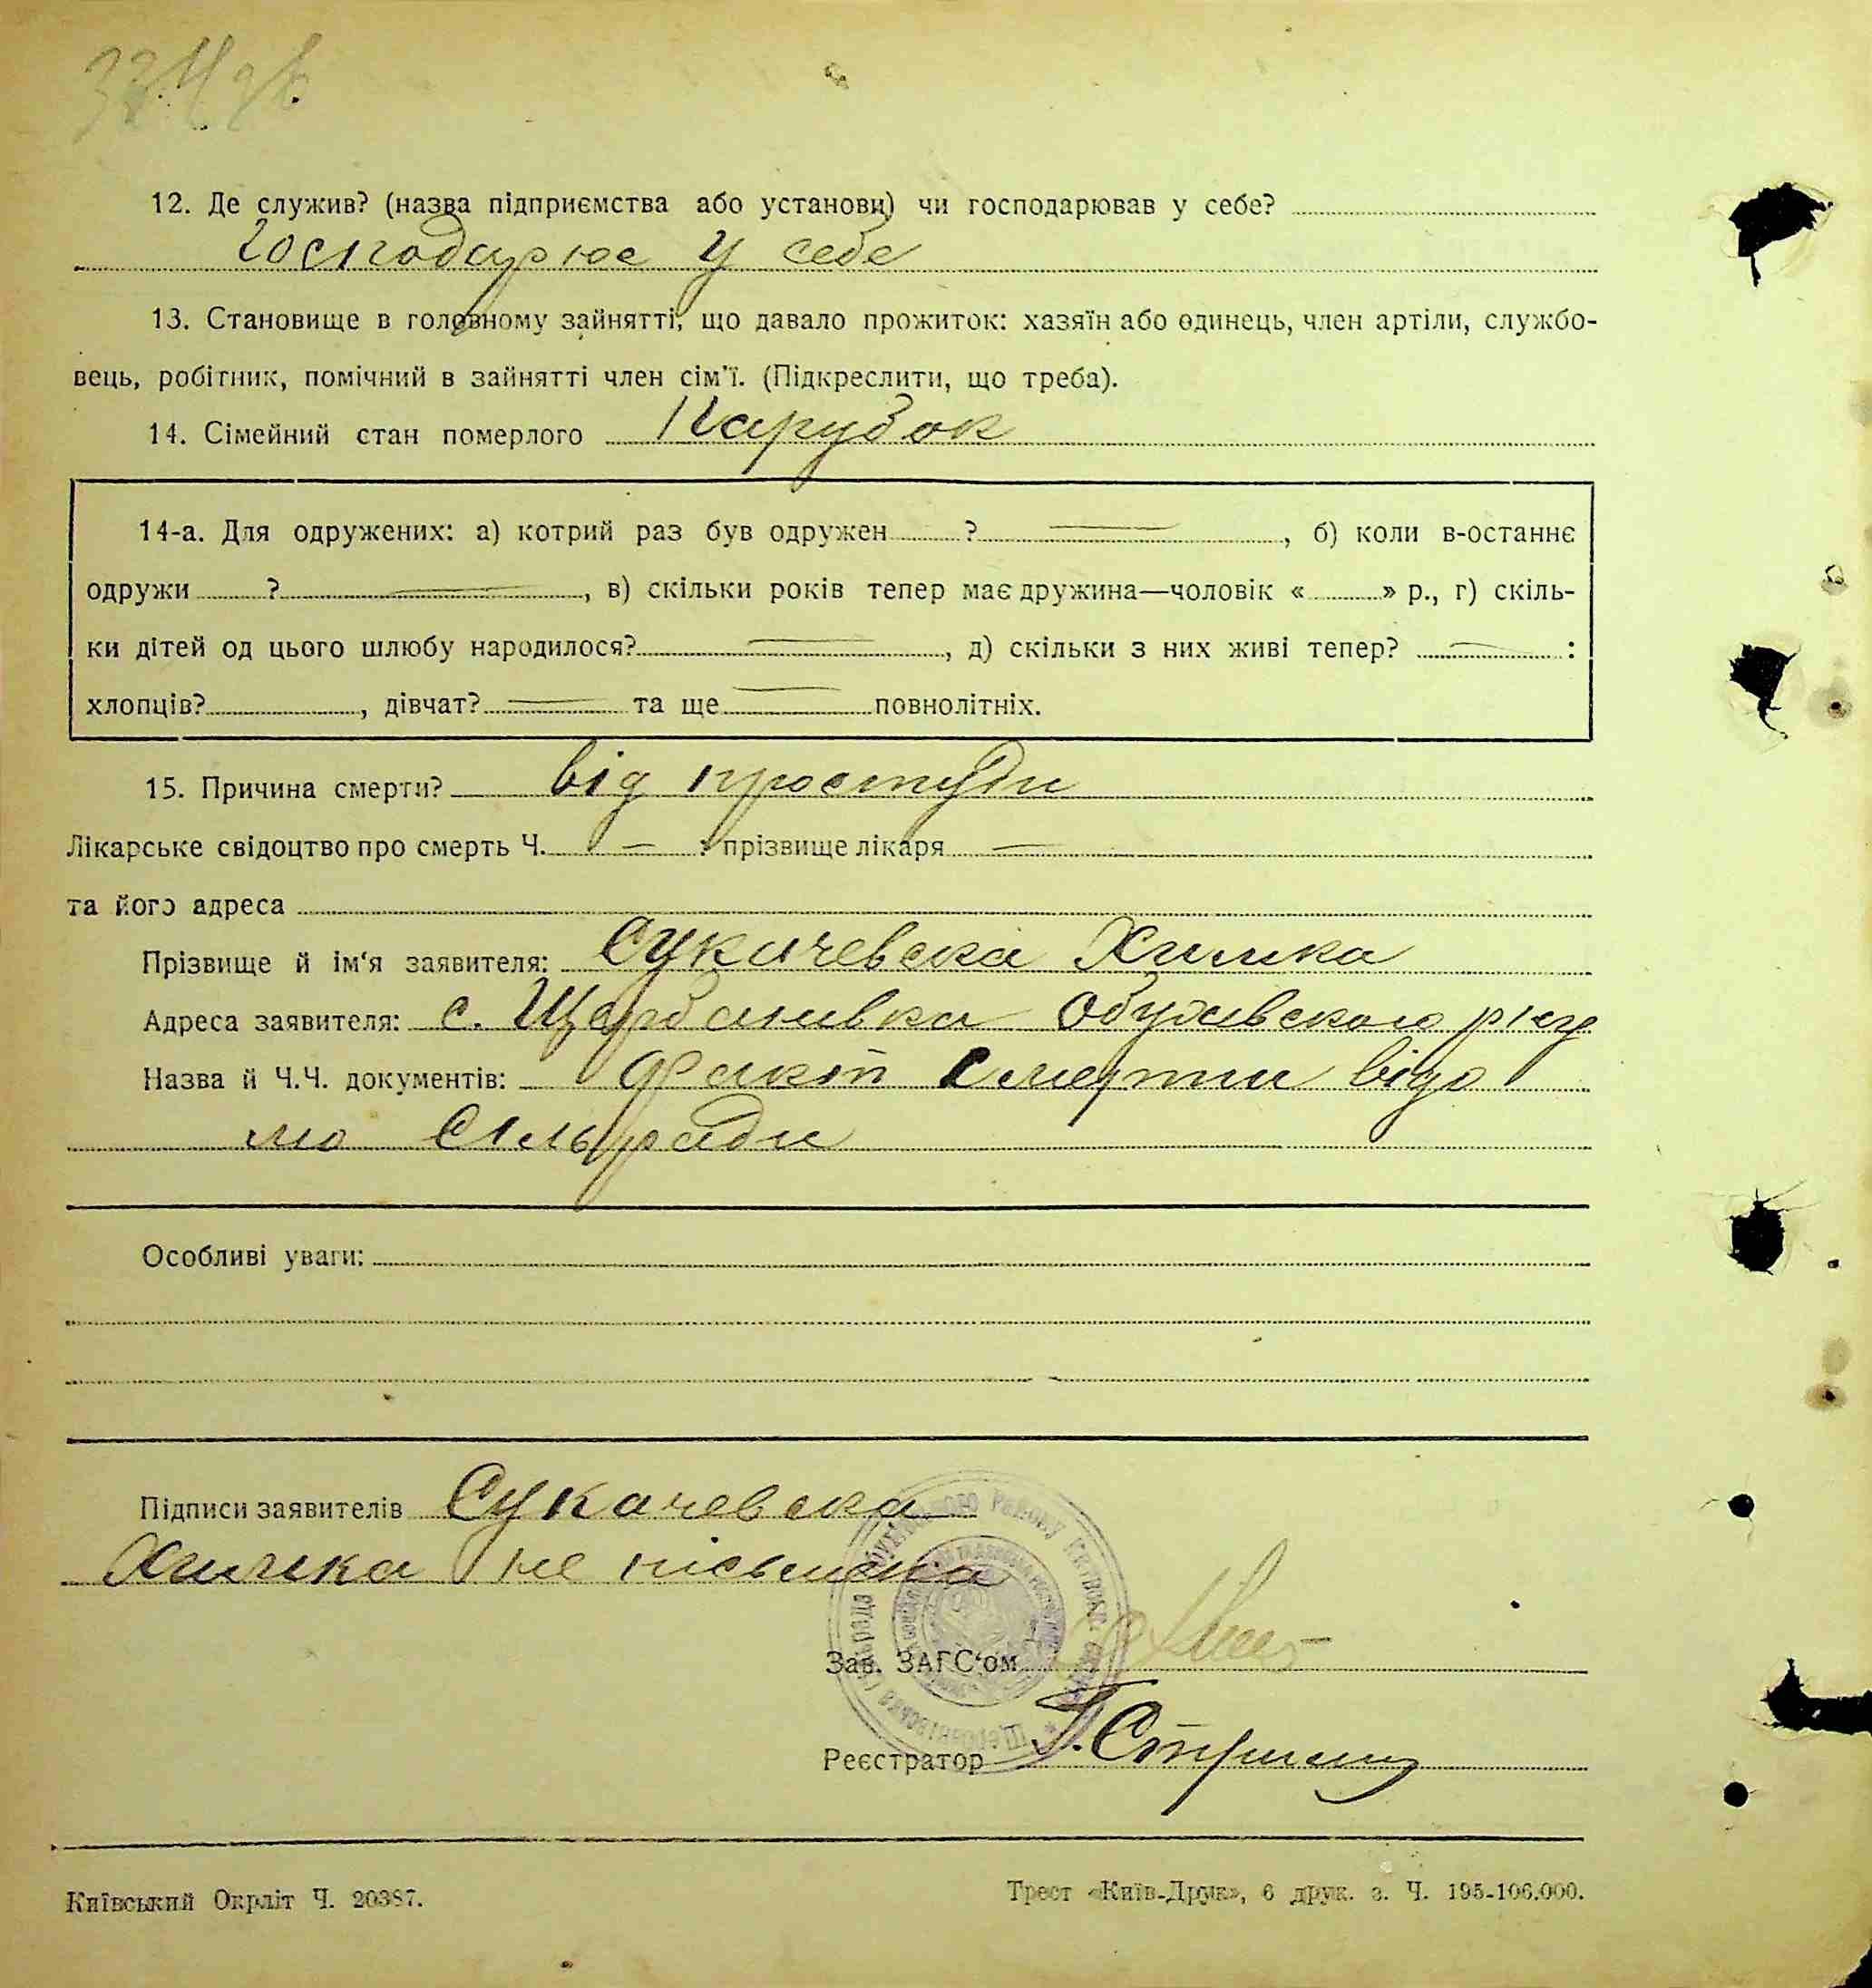 12. Де служив? (назва підприємства або установи) чи господарював у себе?
Господарює у себе
13. Становище в головному зайнятті, що давало прожиток: хазяїн або одинець, член артіли, службо-
вець, робітник, помічний в зайнятті член сім'ї. (Підкреслити, що треба).
14. Сімейний стан померлого Парубок
14-а. Для одружених: а) котрий раз був одружен ? , б) коли в-останнє
одружи ? , в) скільки років тепер має дружина—чоловік « » р., г) скіль-
ки дітей од цього шлюбу народилося? , д) скільки з них живі тепер? :
хлопців? , дівчат? та ще повнолітніх.
15. Причина смерти? від простуди
Лікарське свідоцтво про смерть Ч. — : прізвище лікаря —
та його адреса
Прізвище й ім'я заявителя: Сукачевска Химка
Адреса заявителя: с. Щербанивка Обухивского
Назва й Ч.Ч. документів: Факт смерти відо
мо Сільради
Особливі уваги:
Підписи заявителів Сукачевска
Химка не письмена
Зав. ЗАГС'ом
Реєстратор
Київський Окрліт Ч. 20387.
Трест «Київ-Друк», 6 друк. з. Ч. 195-106.000.